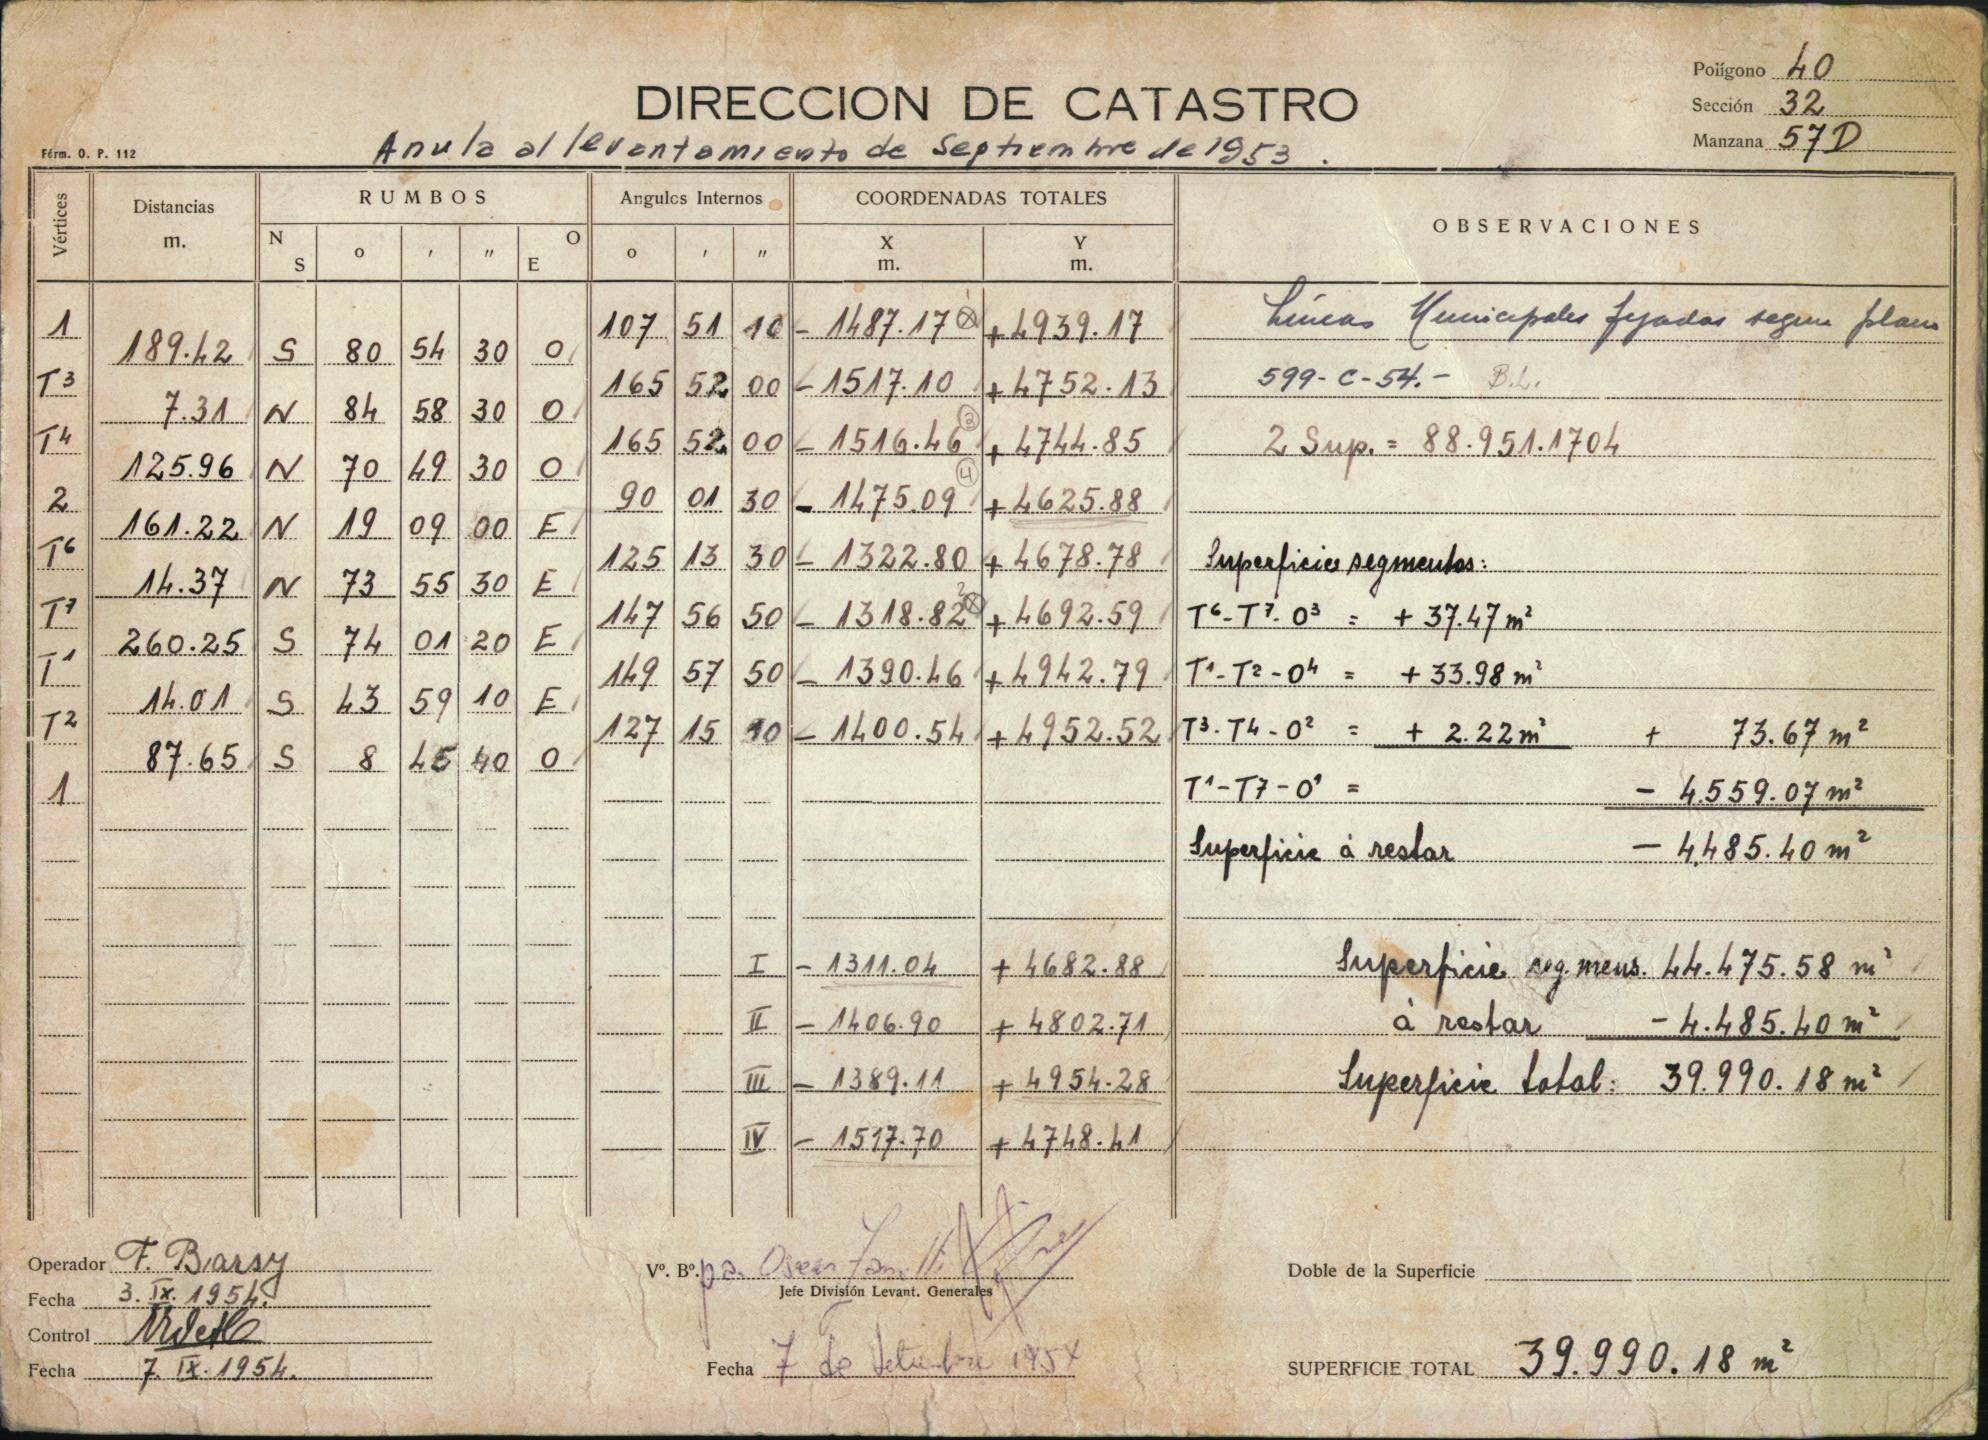 Polígono 40
DIRECCION DE CATASTRO
Sección 32
Manzana 57D
Férm. O. P. 112
Anula al levantamiento de Septiembre de 1953.
Vértices Distancias m. RUMBOS Angulos Internos COORDENADAS TOTALES OBSERVACIONES
N S o ' " O E o ' " X m. Y m.
1 107 51 10 - 1487.17 + 4939.17 Líneas Municipales fijadas segun plano
189.42 S 80 54 30 O
T3 165 52 00 - 1517.10 + 4752.13 599-C-54.- B.L.
7.31 N 84 58 30 O
T4 165 52 00 - 1516.46 + 4744.85 2 Sup. = 88.951.1704
125.96 N 70 49 30 O
2 90 01 30 - 1475.09 + 4625.88
161.22 N 19 09 00 E
T6 125 13 30 - 1322.80 + 4678.78 Superficies segmentos:
14.37 N 73 55 30 E
T7 147 56 50 - 1318.82 + 4692.59 T6-T7-O3 = + 37.47 m²
260.25 S 74 01 20 E
T1 149 57 50 - 1390.46 + 4942.79 T1-T2-O4 = + 33.98 m²
14.01 S 43 59 10 E
T2 127 15 10 - 1400.54 + 4952.52 T3-T4-O2 = + 2.22 m² + 73.67 m²
87.65 S 8 45 40 O
1 T1-T7-O1 = - 4.559.07 m²
Superficie à restar - 4.485.40 m²
I - 1311.04 + 4682.88 Superficie seg. mens. 44.475.58 m²
II - 1406.90 + 4802.71 à restar - 4.485.40 m²
III - 1389.11 + 4954.28 Superficie total: 39.990.18 m²
IV - 1517.70 + 4748.41
Operador F. Barsy
Vº. Bº. pa. Oscar
Doble de la Superficie
Fecha 3. IX. 1954.
Jefe División Levant. Generales
Control
Fecha 7. IX. 1954.
Fecha 7 de Setiembre 1954
SUPERFICIE TOTAL 39.990.18 m²